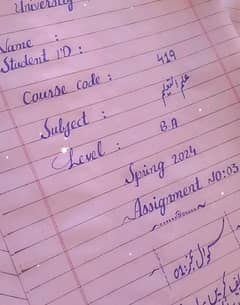 University
Name :
Student ID :
Course code : 419
Subject : علم التعلیم
Level : B.A
Spring 2024
Assignment No: 03
سوال نمبر 01